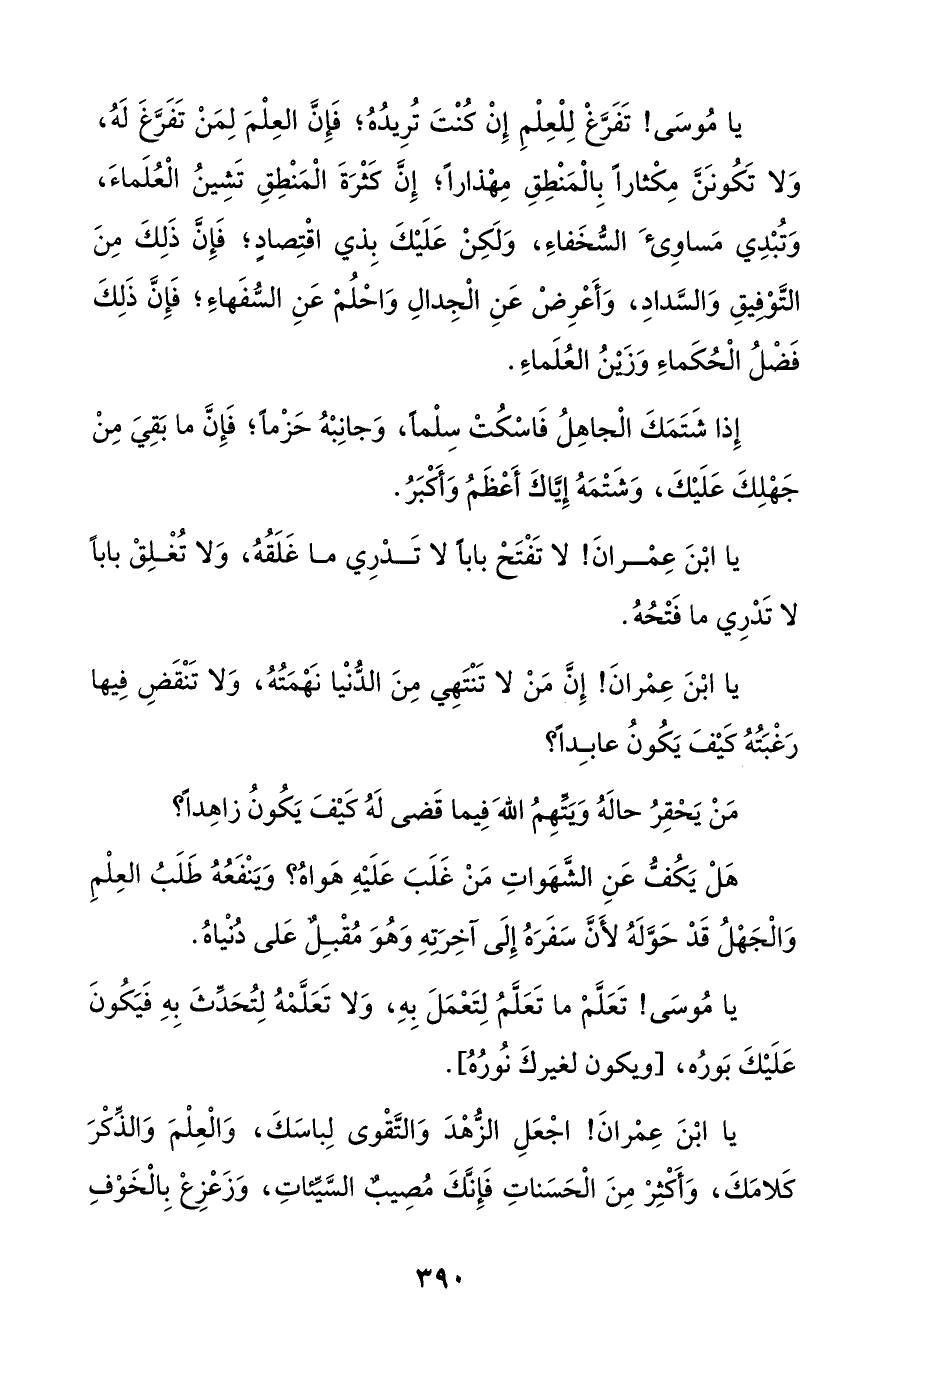 يا مُوسَى! تَفَرَّغْ لِلْعِلْمِ إِنْ كُنْتَ تُرِيدُهُ؛ فَإِنَّ العِلْمَ لِمَنْ تَفَرَّغَ لَهُ،
وَلا تَكُونَنَّ مِكْثاراً بِالْمَنْطِقِ مِهْذاراً؛ إِنَّ كَثْرَةَ الْمَنْطِقِ تَشِينُ الْعُلَماءَ،
وَتُبْدِي مَساوِىءَ السُّخَفاءِ، وَلَكِنْ عَلَيْكَ بِذي اقْتِصادٍ؛ فَإِنَّ ذَلِكَ مِنَ
التَّوْفِيقِ وَالسَّدادِ، وَأَعْرِضْ عَنِ الْجِدالِ وَاحْلُمْ عَنِ السُّفَهاءِ؛ فَإِنَّ ذَلِكَ
فَضْلُ الْحُكَماءِ وَزَيْنُ العُلَماءِ.
إِذا شَتَمَكَ الْجاهِلُ فَاسْكُتْ سِلْماً، وَجانِبْهُ حَزْماً؛ فَإِنَّ ما بَقِيَ مِنْ
جَهْلِكَ عَلَيْكَ، وَشَتْمَهُ إِيَّاكَ أَعْظَمُ وَأَكْبَرُ.
يا ابْنَ عِمْـرانَ! لا تَفْتَحْ باباً لا تَـدْرِي مـا غَلَقُهُ، وَلا تُغْـلِقْ باباً
لا تَدْرِي ما فَتْحُهُ.
يا ابْنَ عِمْرانَ! إِنَّ مَنْ لا تَنْتَهِي مِنَ الدُّنْيا نَهْمَتُهُ، وَلا تَنْقَضِ فِيها
رَغْبَتُهُ كَيْفَ يَكُونُ عابِـداً؟
مَنْ يَحْقِرُ حالَهُ وَيَتَّهِمُ اللهَ فِيما قَضى لَهُ كَيْفَ يَكُونُ زاهِداً؟
هَلْ يَكُفُّ عَنِ الشَّهَواتِ مَنْ غَلَبَ عَلَيْهِ هَواهُ؟ وَيَنْفَعُهُ طَلَبُ العِلْمِ
وَالْجَهْلُ قَدْ حَوَّلَهُ لأَنَّ سَفَرَهُ إِلَى آخِرَتِهِ وَهُوَ مُقْبِـلٌ عَلى دُنْياهُ.
يا مُوسَى! تَعَلَّمْ ما تَعَلَّمُ لِتَعْمَلَ بِهِ، وَلا تَعَلَّمْهُ لِتُحَدِّثَ بِهِ فَيَكُونَ
عَلَيْكَ بَورُه، [ويكون لغيركَ نُورُهُ].
يا ابْنَ عِمْرانَ! اجْعَلِ الزُّهْدَ وَالتَّقْوى لِباسَكَ، وَالْعِلْمَ وَالذِّكْرَ
كَلامَكَ، وَأَكْثِرْ مِنَ الْحَسَناتِ فَإِنَّكَ مُصِيبٌ السَّيِّئاتِ، وَزَعْزِعْ بِالْخَوْفِ
٣٩٠